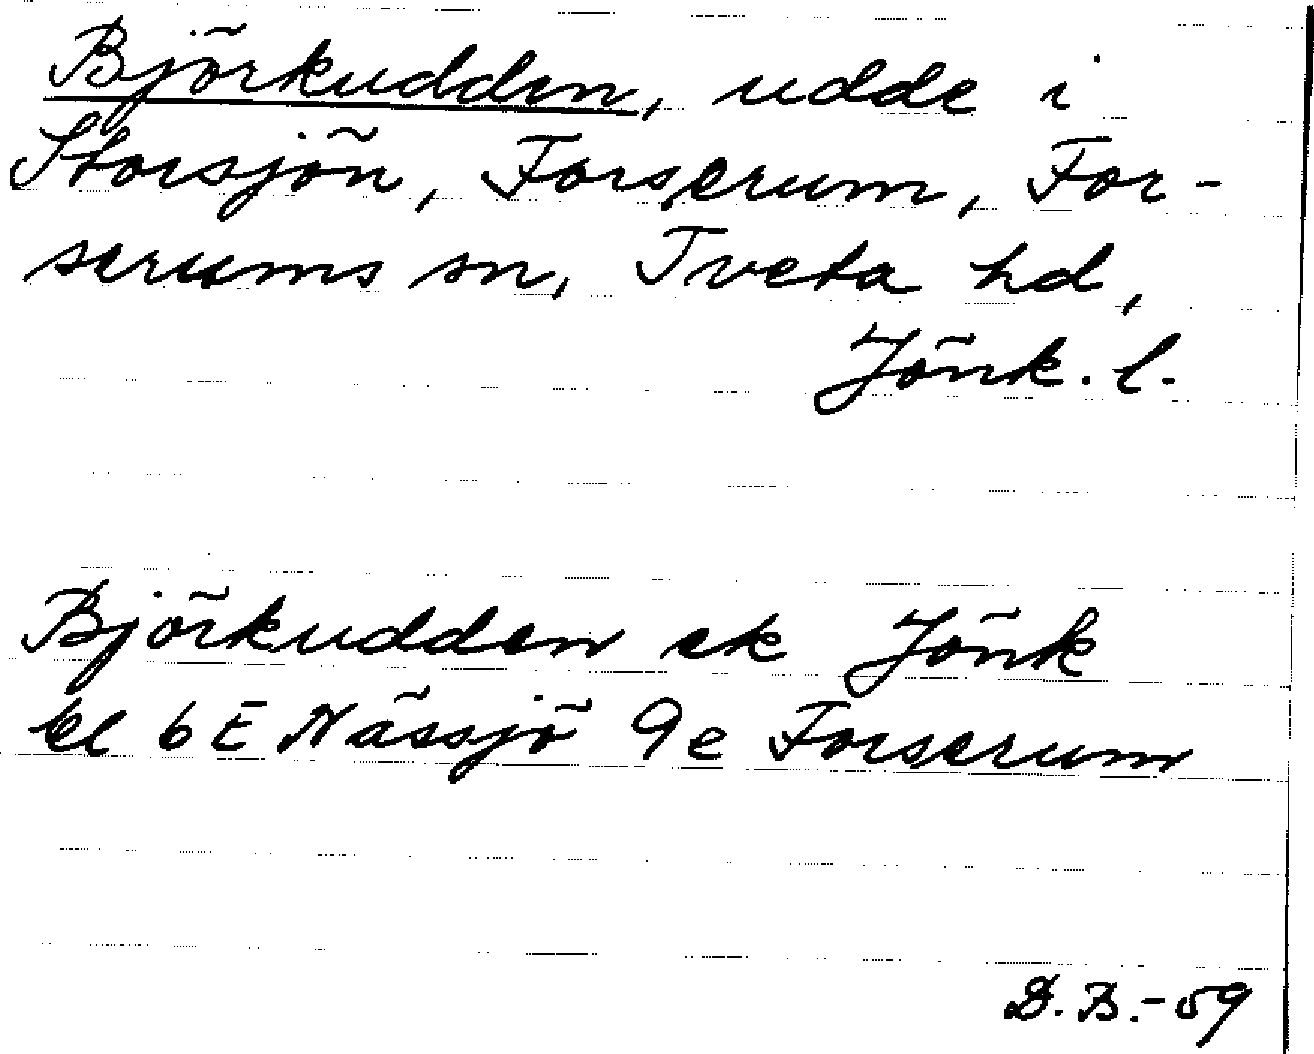 Björkudden, udde i
Storsjön, Forserum, For-
serums sn, Tveta hd,
Jönk. l.
Björkudden ek Jönk
bl 6E Nässjö 9e Forserum
B.B.-59